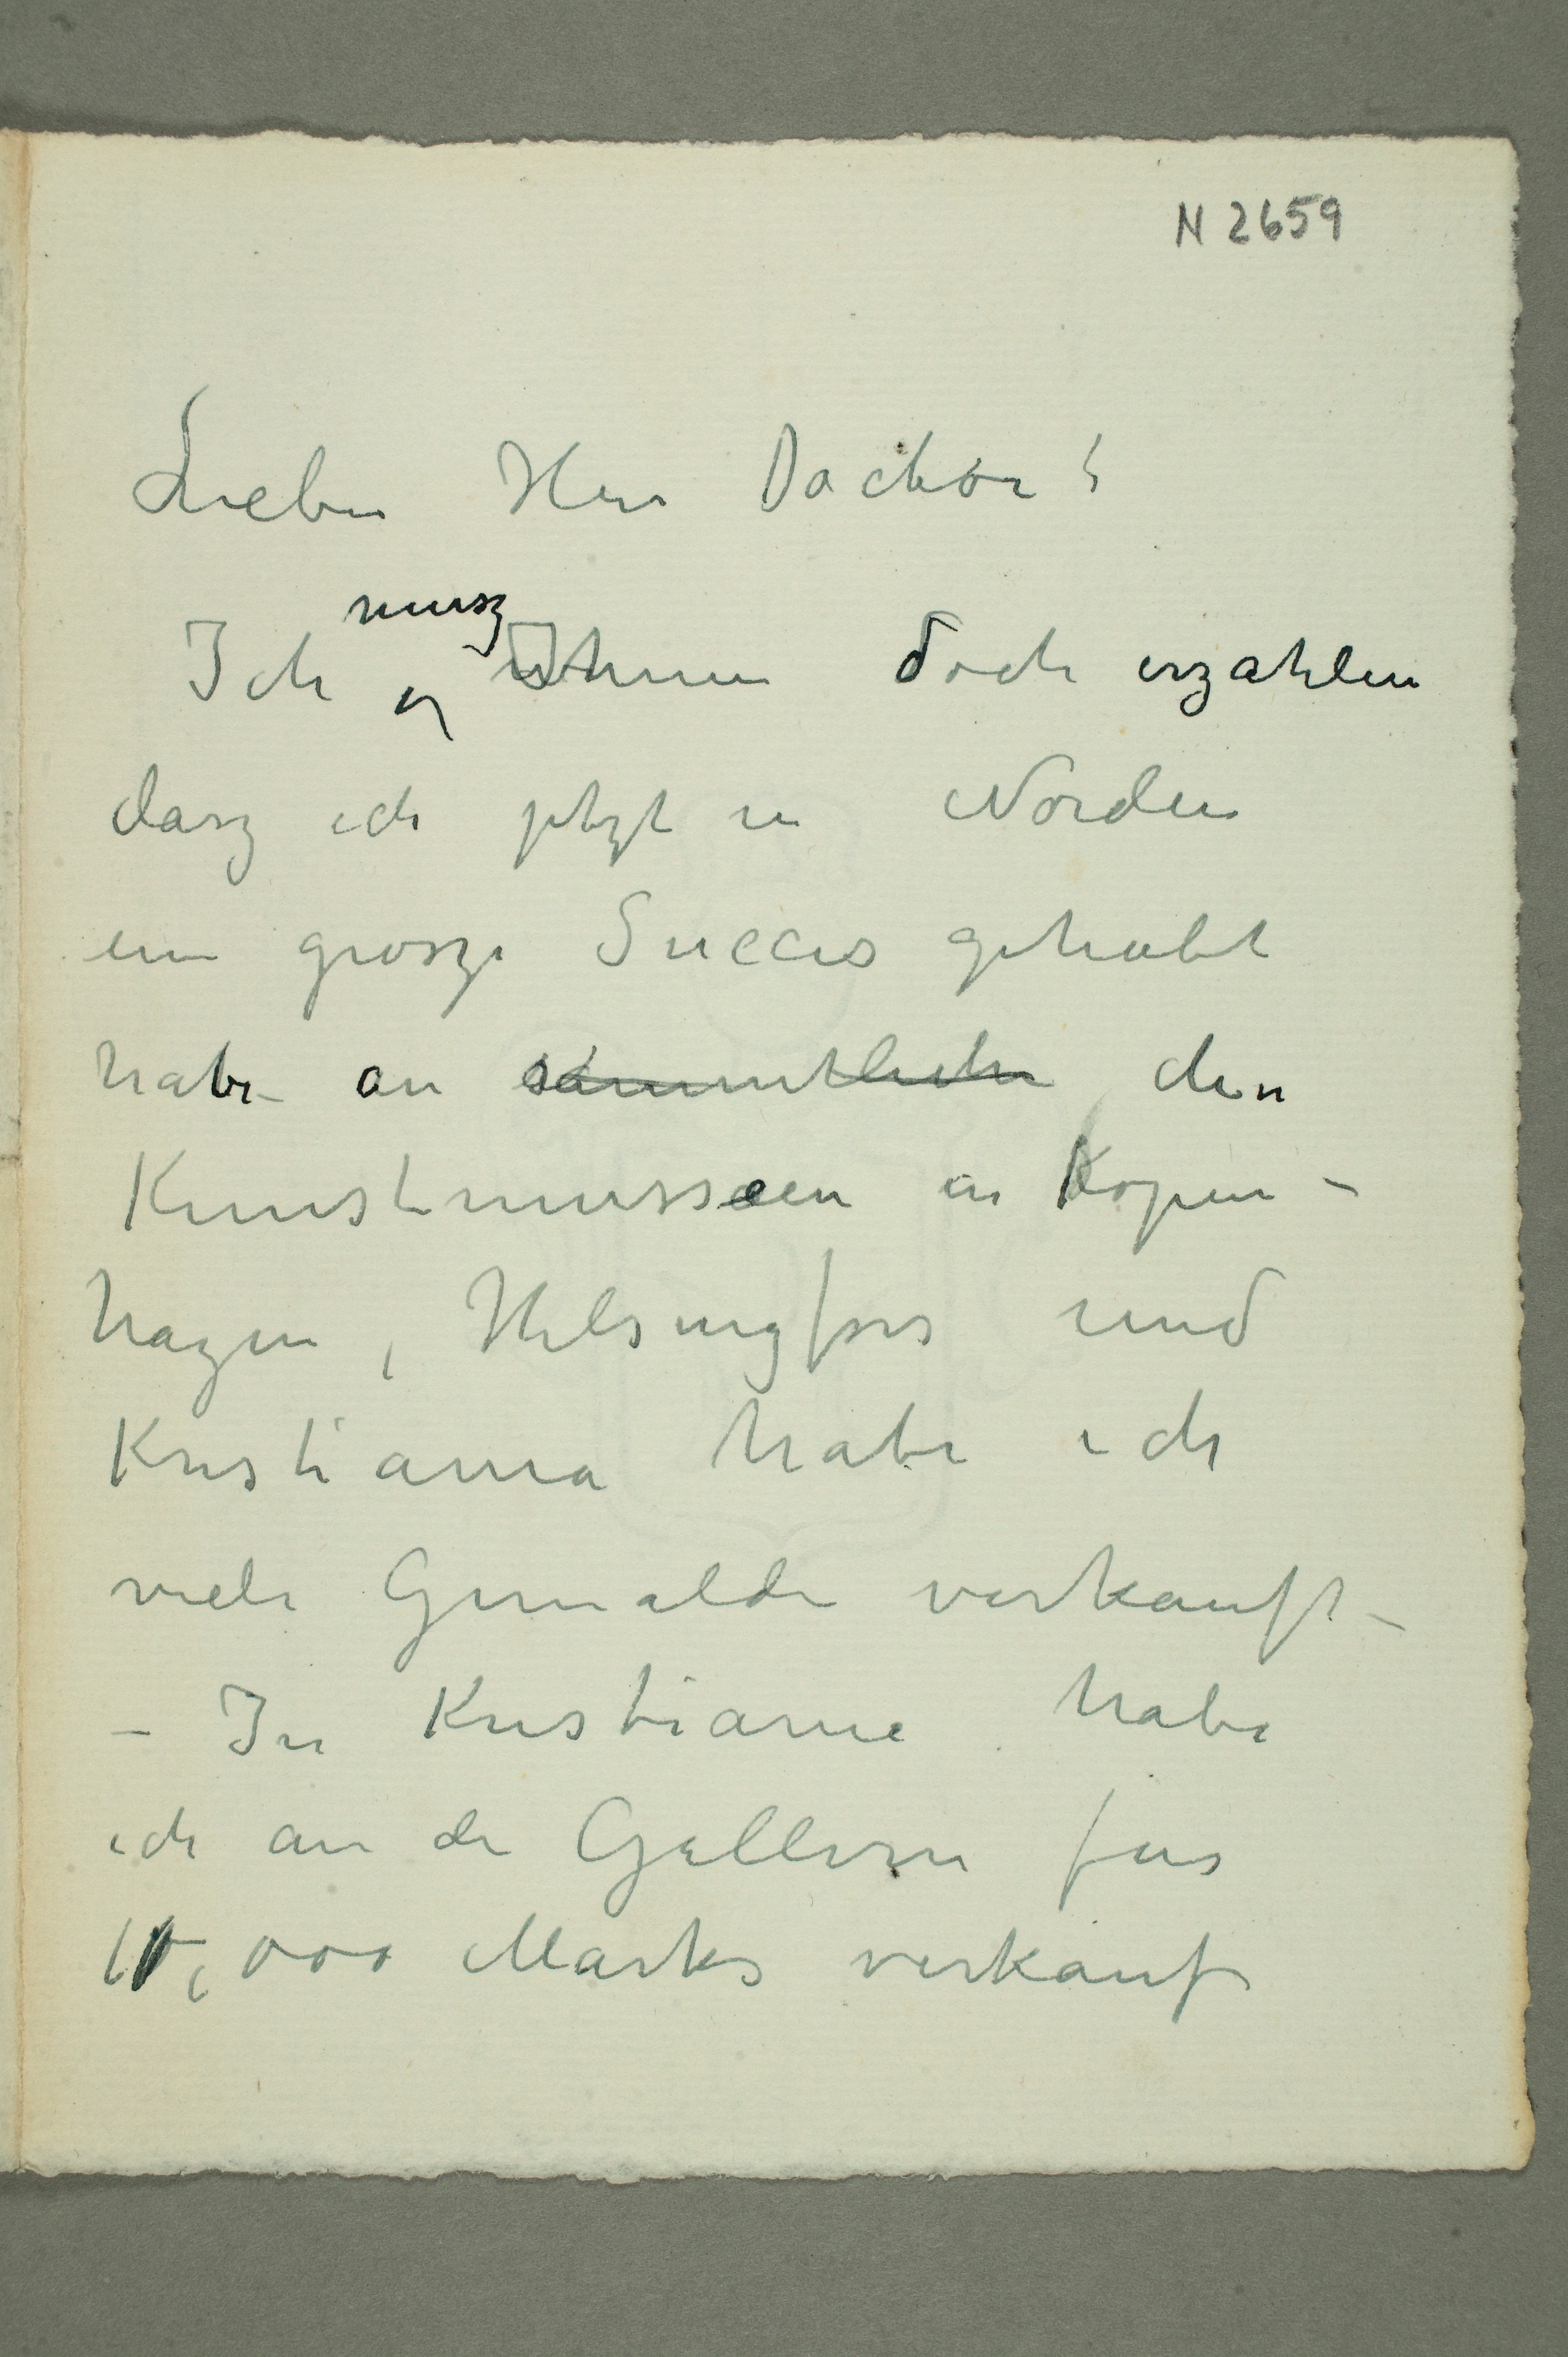 N 2659
Lieber Herr Docktor!
musz
Ich Ihnen doch erzahlen
dasz ich jetzt in Norden
ein grosze Succes gehabt
habe – an sämmtliche den
Kunstmusseen in Kopen-
hagen, Helsingfors und
Kristiania habe ich
viele Gemalde verkauft –
– In Kristiania habe
ich an de Gallerie fur
10,000 Marks verkauf